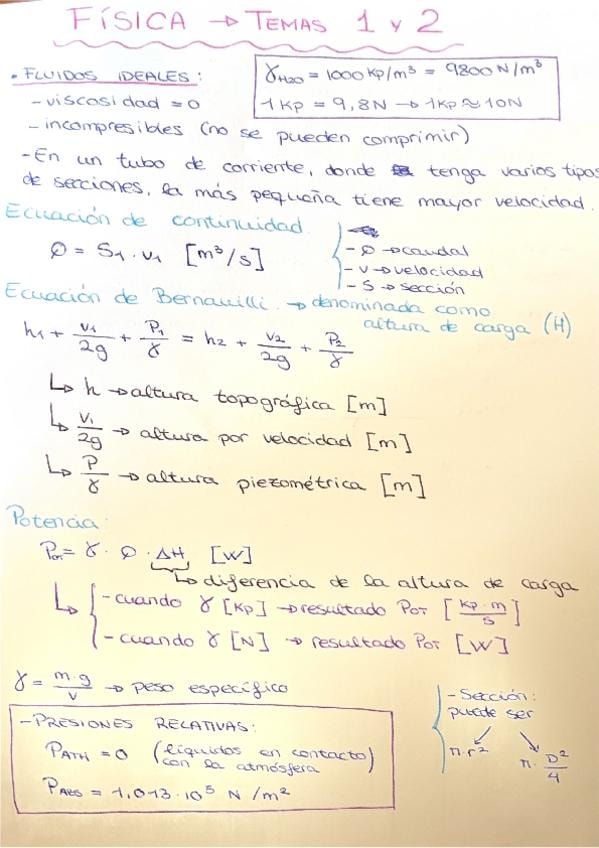 FÍSICA → TEMAS 1 y 2
• FLUIDOS IDEALES:
γH2O = 1000 Kp/m³ = 9800 N/m³
1 Kp = 9,8N → 1Kp ≈ 10N
- viscosidad = 0
- incompresibles (no se pueden comprimir)
- En un tubo de corriente, donde tenga varios tipos
de secciones, la más pequeña tiene mayor velocidad.
Ecuación de continuidad.
Q = S1 · v1 [m³/s]
- Q → caudal
- v → velocidad
- S → sección
Ecuación de Bernauilli. → denominada como
altura de carga (H)
h1 + v1/2g + P1/γ = h2 + v2/2g + P2/γ
↳ h → altura topográfica [m]
↳ v1/2g → altura por velocidad [m]
↳ P/γ → altura piezométrica [m]
Potencia:
Pot = γ · Q · ΔH [W]
↳ diferencia de la altura de carga
↳ - cuando γ [Kp] → resultado POT [Kp·m/s]
- cuando γ [N] → resultado POT [W]
γ = m·g/v → peso específico
- PRESIONES RELATIVAS:
PATM = 0 (líquidos en contacto con la atmósfera)
PABS = 1,013 · 10⁵ N/m²
- Sección:
puede ser
π·r² π · D²/4